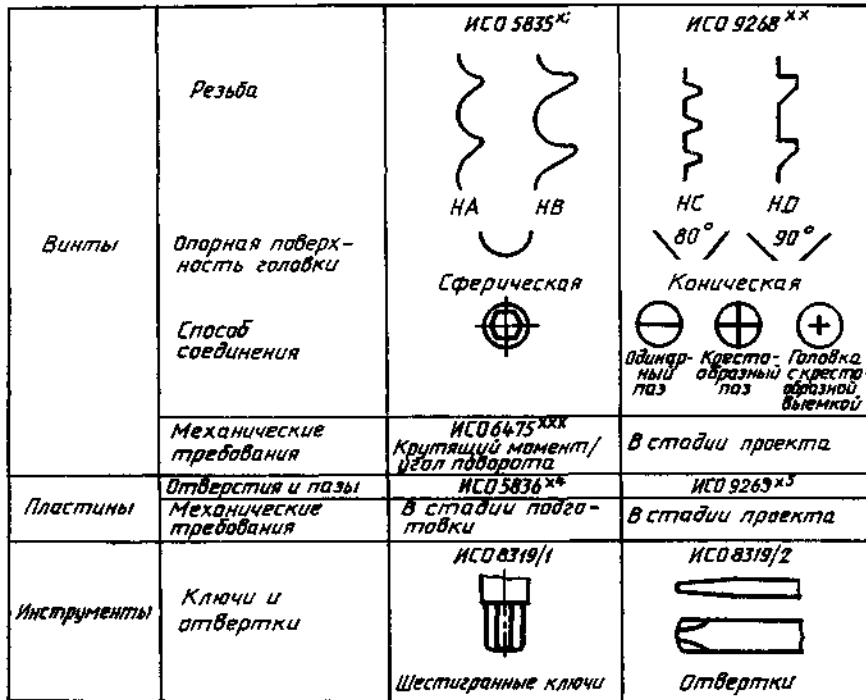 ИСО 5835 x; ИСО 9268 xx
Резьба
НА НВ НС НD
Винты
Опорная поверх-
ность головки
80° 90°
Сферическая Коническая
Способ
соединения
Одинар-
ный
паз
Кресто-
образный
паз
Головка
с кресто-
образной
выемкой
Механические
требования
ИСО 6475 xxx
Крутящий момент/
угол поворота
В стадии проекта
Пластины
Отверстия и пазы ИСО 5836 x4 ИСО 9269 x5
Механические
требования
В стадии подго-
товки
В стадии проекта
Инструменты
Ключи и
отвертки
ИСО 8319/1 ИСО 8319/2
Шестигранные ключи Отвертки